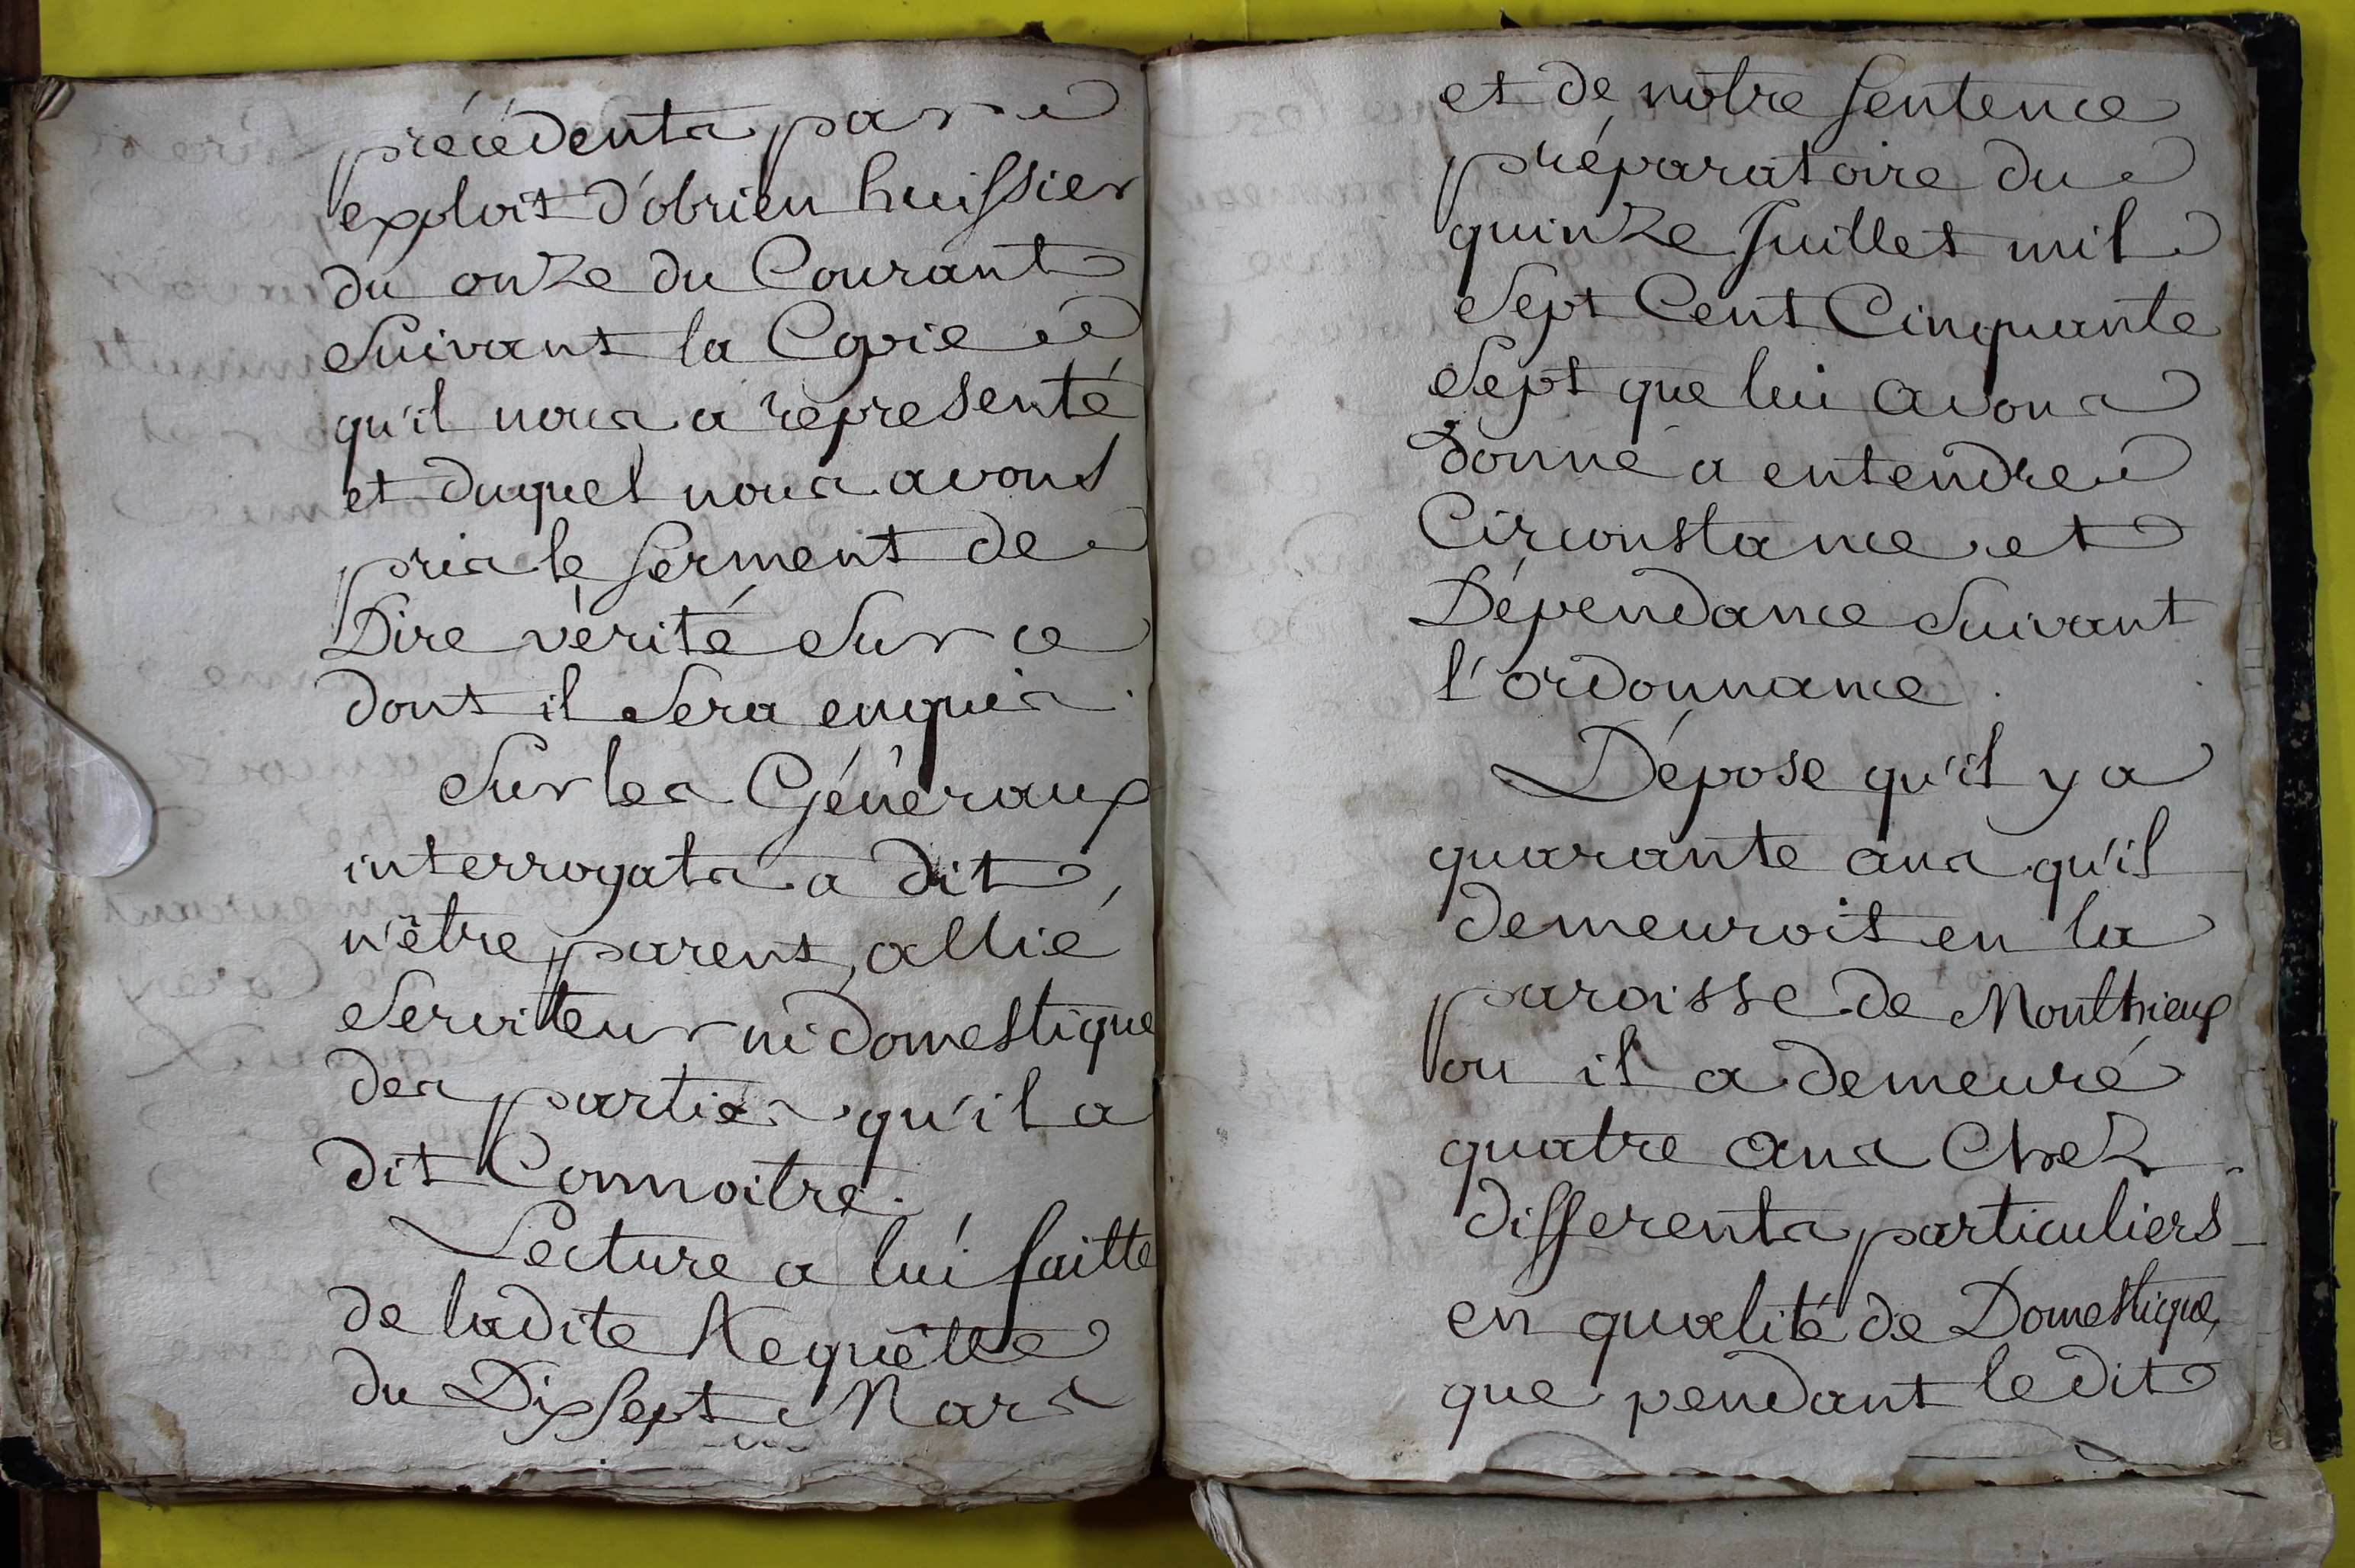 précédents par
exploit d'obrien huissier
du onze du Courant
Suivant la Copie
qu'il nous a représenté
et duquel nous avons
pris le serment de
Dire vérité Sur ce
dont il Sera enquis.
Sur les Généraux
interrogats a dit
n'être parent, allié
Serviteur ni domestique
des parties qu'il a
dit Connoitre.
Lecture a lui faitte
de ladite Requêtte
du Dix sept Mars
et de nôtre sentence
préparatoire du
quinze Juillet mil
Sept Cent Cinquante
Sept que lui avons
donné a entendre
Circonstance et
Dépendance Suivant
l'ordonnance.
Dépose qu'il y a
quarante ans qu'il
demeuroit en la
paroisse de Monthieux
ou il a demeuré
quatre ans Chez
differents particuliers
en qualité de Domestique,
que pendant le dit